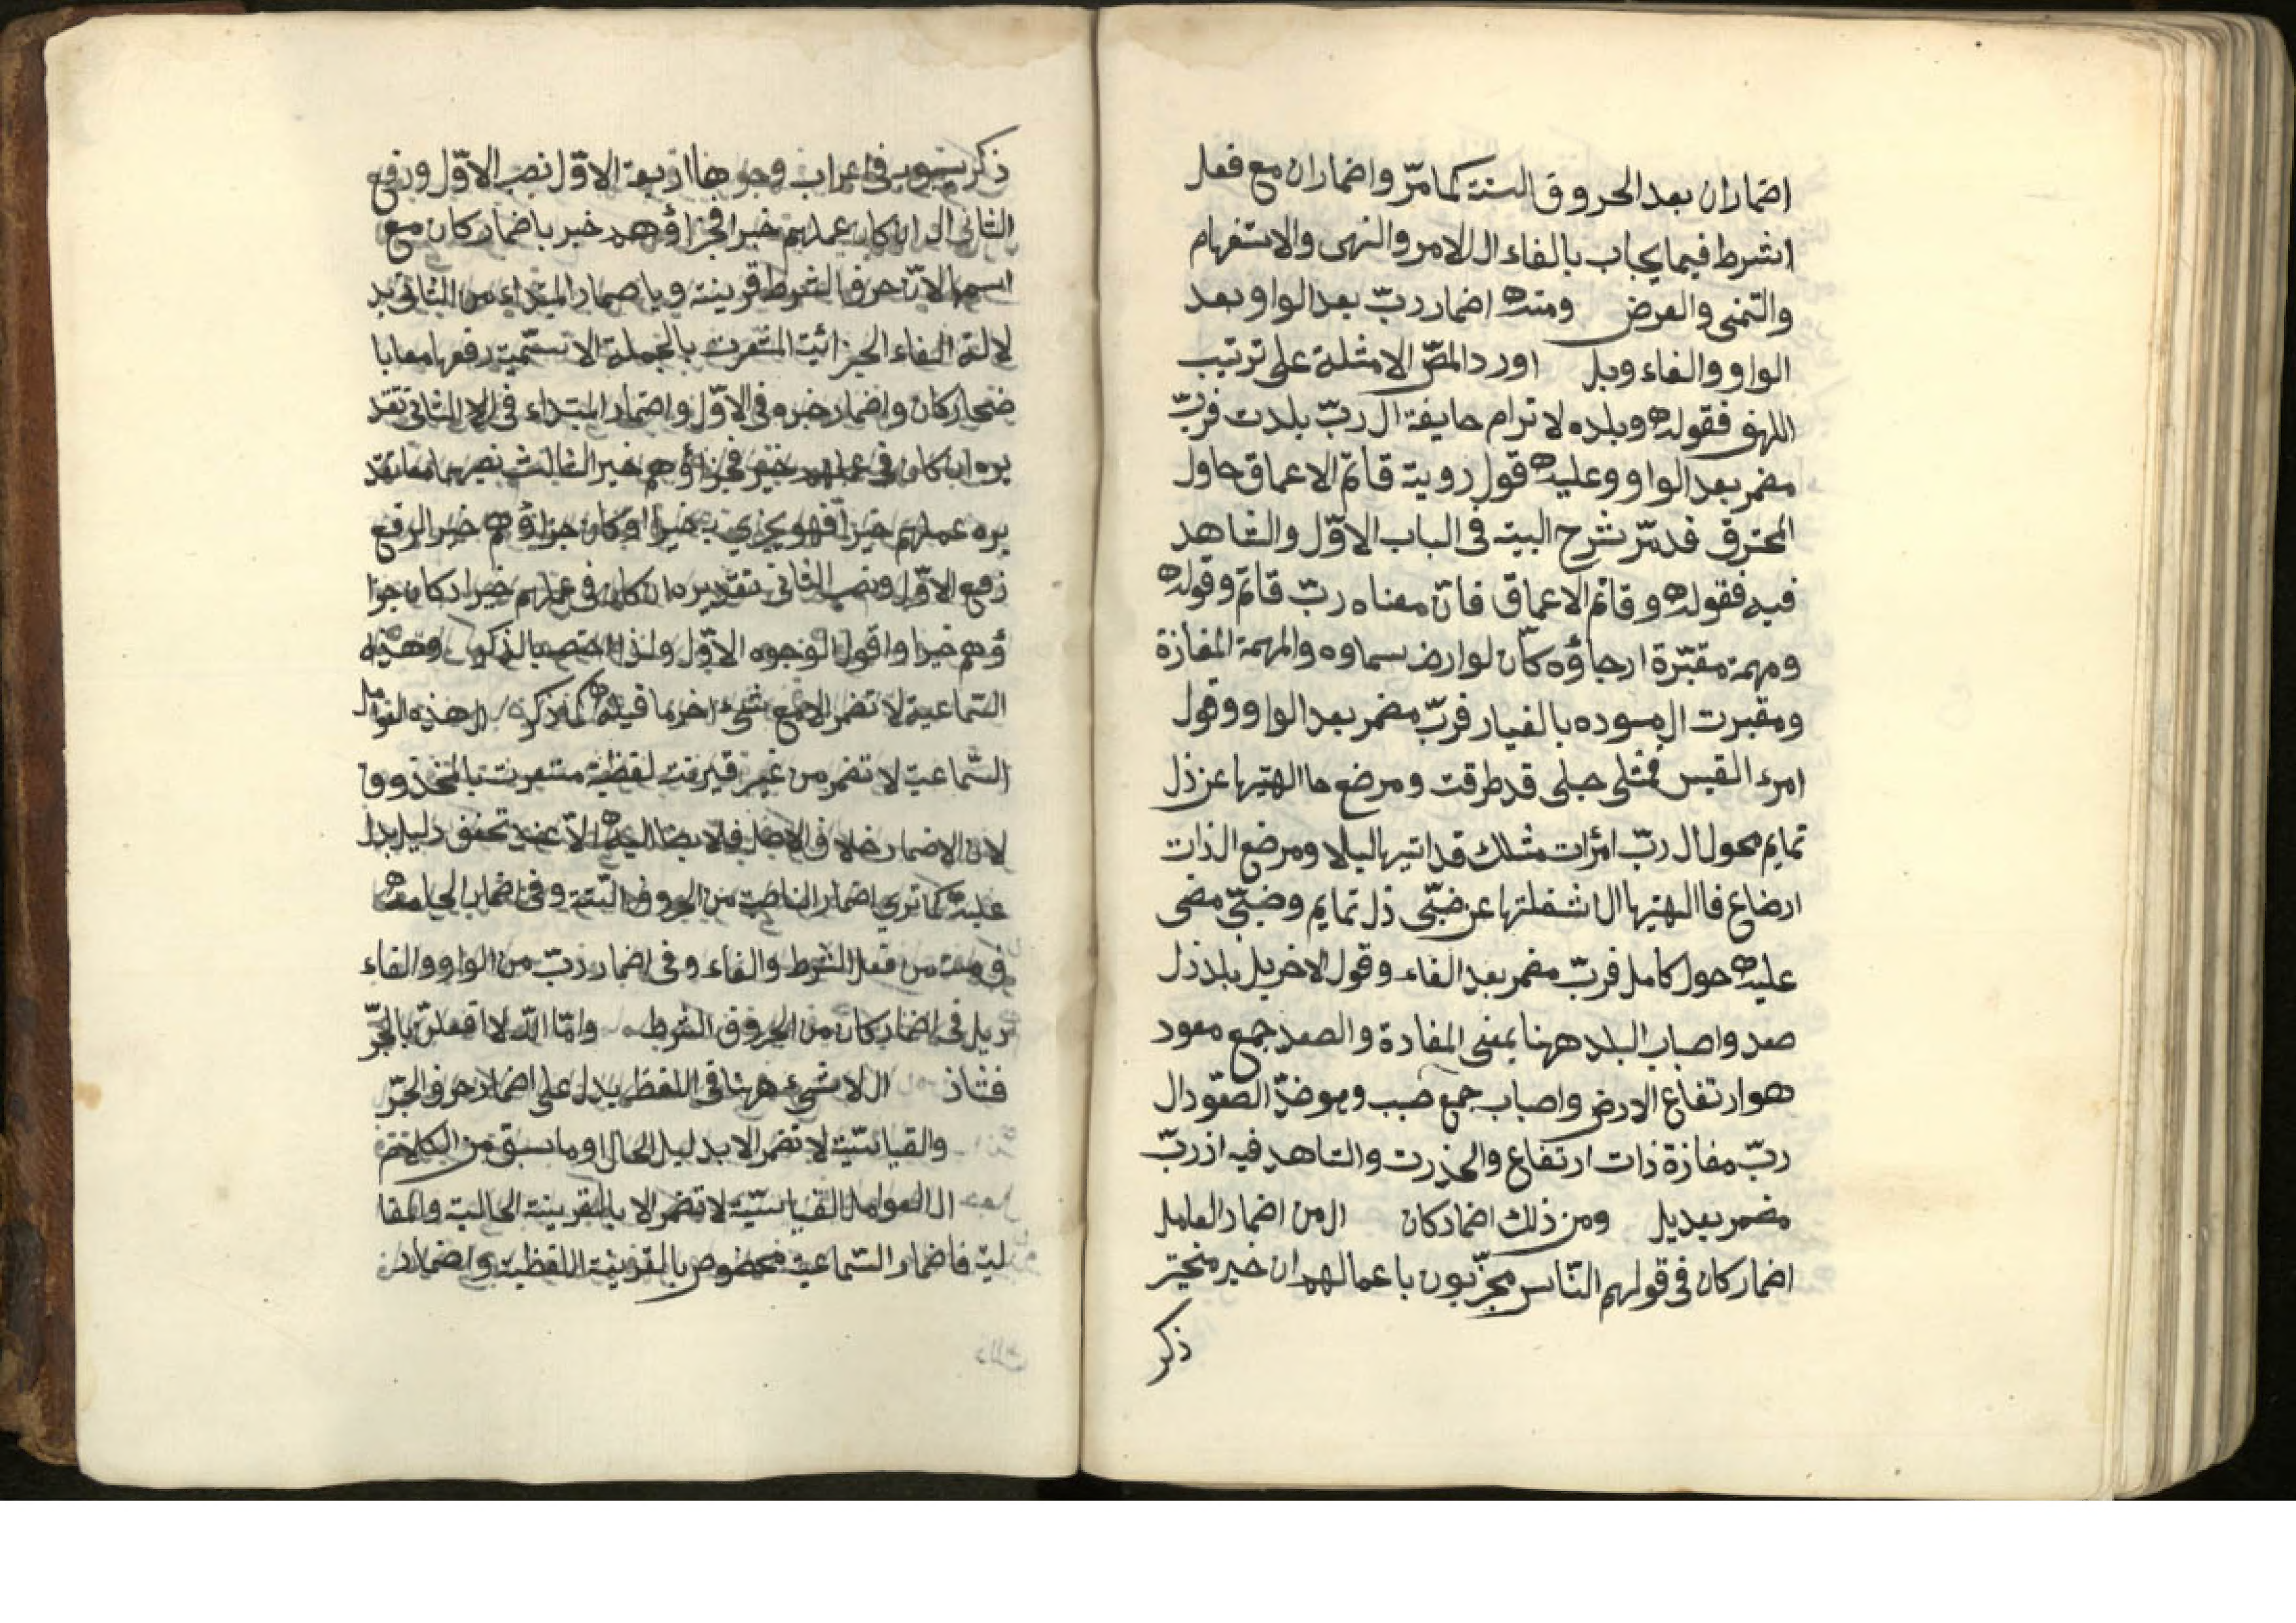 اضماران بعد الحروق الستة كما مرّ واضماران مع فعل
الشرط فيما يجاب بالفاء ال للامر والنهى والاستفهام
والتمنى والعرض ومنه اضمار ربّ بعد الواو وبعد
الواو والفاء وبل اورد المصّ الامثلة على ترتيب
اللهق فقوله وبلده لا ترام حايفة ال ربّ بلدت فربّ
مضمر بعد الواو وعليه قول روية قاتم الاعماق حاول
المخترق فد مرّ شرح البيت فى الباب الاوّل والشاهد
فيه فقوله وقاتم الاعماق فانّ معناه ربّ قاتم وقوله
ومهمة مقبّرة ارجاؤه كانّ لوارض سماوه والمهمة المفازة
ومقبرت ال مسوده بالغبار فربّ مضمر بعد الواو وقول
امرء القيس فمثلى حبلى قد طرقت ومرضع ما الهيتها عن ذل
تمايم محول ال ربّ امرات مثلك قد اتيها ليالا ومرضع الذات
ارضاع فا الهيتها ال اشغلتها عن ضبّى ذل تمايم وضبّى مضى
عليه حول كامل فربّ مضمر بعد الفاء وقول الاخر بل بلد ذل
صعد واصباب البلد ههنا بمعنى المفادة والصعد جمع معود
هو ارتفاع الارض واصباب جمع صبب وهو ضدّ الصعّود ال
ربّ مفازة ذات ارتفاع والحذرت والشاهد فيه اذ ربّ
مضمر بعد بل ومن ذلك اضمار كان ال من اضمار العامل
اضمار كان فى قولهم النّاس مجزّبون باعمالهم ان خير منخيّر
ذكر
ذكر سيبويه فى اعراب وجوهها اربعة الاوّل نصب الاوّل ورفع
الثانى ال ان كان عملهم خيرا فجزاؤهم خير باضمار كان مع
اسمها لانّ حرف الشرط قرينة وباضمار المبتداء من الثانى بد
لالة الفاء الجزائية المتعرت بالجملة الاسميّة رفعها معا با
ضمار كان واضمار خبره فى الاوّل واضمار المبتداء فى الثانى تقد
يره ان كان فى عملهم خير فجزاؤهم خير الثالث نصبهما معا تقد
يره عملهم خيرا فهو يجزي به خيرا او كان جزاؤهم خيرا الرقع
رفع الاوّل ونصب الثانى تقديره ان كان فى عملهم خير ا د كان جزا
ؤهم خيرا واقول الوجوه الاوّل ولذا اختصه بالذكر وهذه
السّماعية لا تضمر الا مع شئ اخر ما قبله كما ذكره ال هذه العوامل
السّماعية لا تضمر من غير قيرنت لفظية متعرت بالمحذوق
لان الاضمار خلاف الاصل فلا يصار اليه الاّ عند تحقق دليل يدل
عليه كما ترى اضمار الناصبة من الحروف الستة وفى اضمار الجازمة
من فعل الشرط والفاء وفى اضمار ربّ من الواو والفاء
وبل فى اضمار كان من الحروق الشرط وامّا اللّه لا اقعلنّ بالجّر
فشاذ ال لا شئ ههنا فى اللفظ يدل على اضمار حرف الجّر
والقياسّية لا تضمر الا بدليل الحال او ما سبق من الكلام
ال العوامل القياسيّة لا تضمر الا بالقرينة الحالية والمقا
لية فاضمار السّماعية مخصوص بالقرينة اللفظية واضمار
ذلك